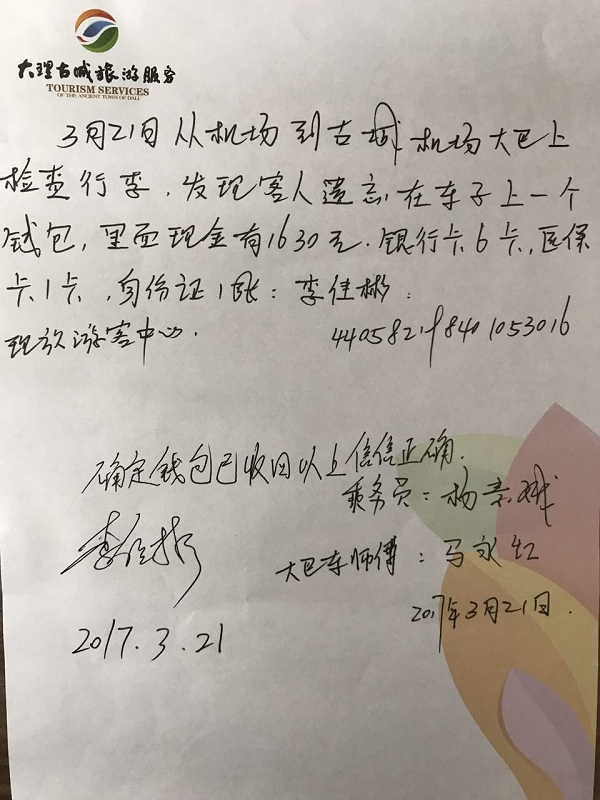 大理古城旅游服务
TOURISM SERVICES
OF THE ANCIENT TOWN OF DALI
3月21日从机场到古城机场大巴上
检查行李,发现客人遗忘在车子上一个
钱包,里面现金有1630元.银行卡6卡,医保
卡1卡,身份证1张:李佳彬.
现放游客中心.
440582198401053016
确定钱包已收回以上信信正确.
乘务员:杨
大巴车师傅:马永红
2017年3月21日.
2017.3.21